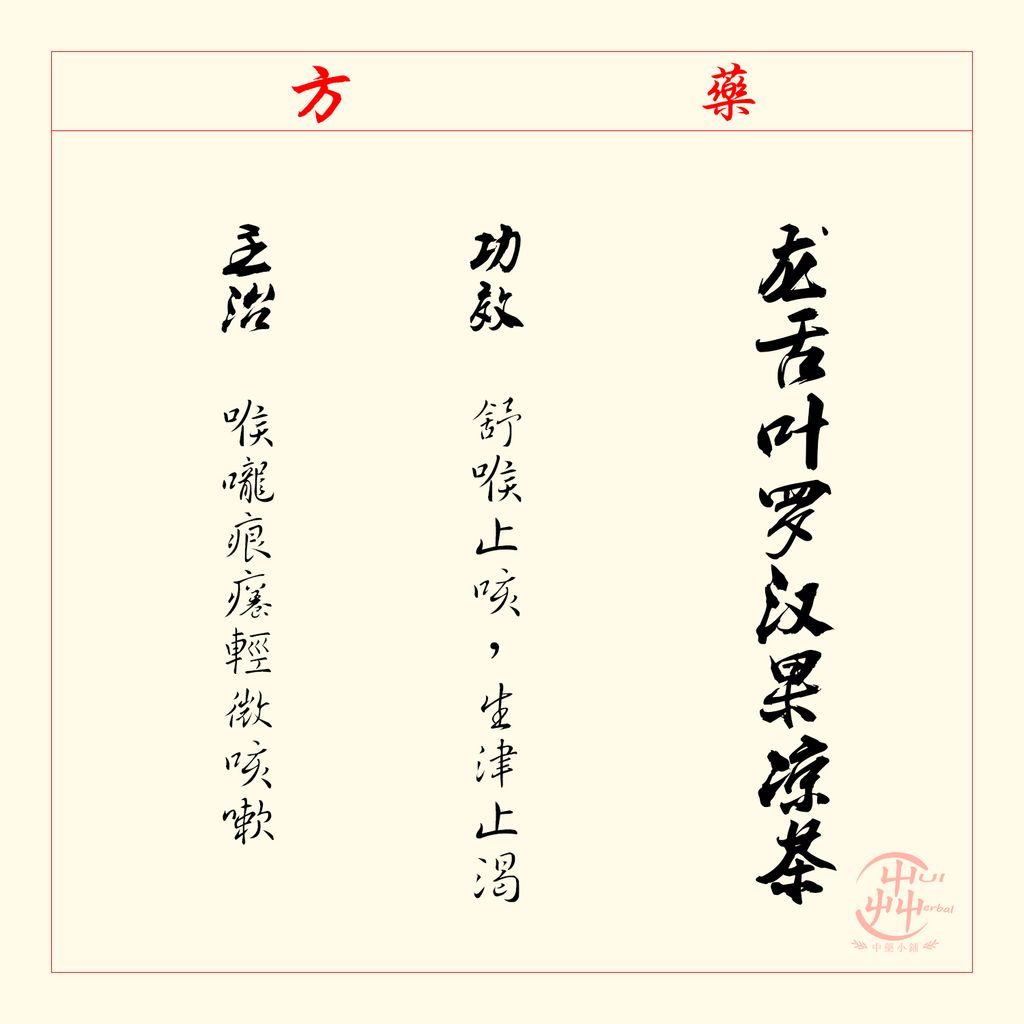 藥方
龙舌叶罗汉果凉茶
功效 舒喉止咳，生津止渴
主治 喉嚨痕癢輕微咳嗽
卉UI
Herbal
中藥小舖